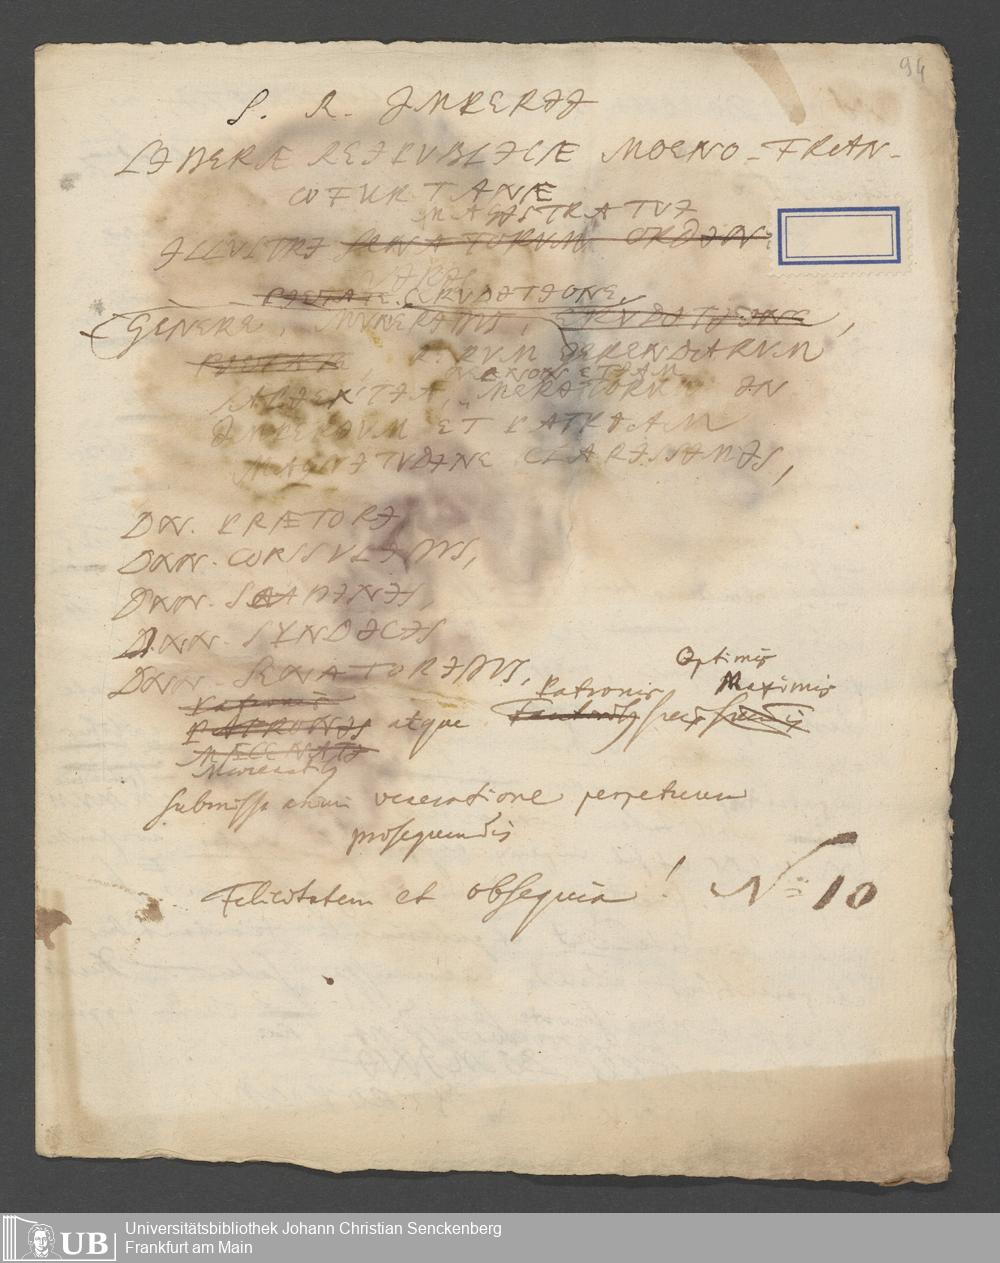 94
S. R. IMPERII
LIBERÆ REIPUBLICÆ MOENO-FRAN-
COFURTANÆ
MAGISTRATUI
ILLUSTRI SENATORUM ORDINI
VIRIS
PIETATE, ERUDITIONE,
GENERE, MUNERIBUS, ERUDITIONE,
RERUM GERENDARUM
NEC NON ETIAM
SAPIENTIA, MERITORUM IN
IMPERIUM ET PATRIAM
MAGNITUDINE CLARISSIMIS,
DN. PRÆTORI
DNN. CONSULIBUS,
DNN. SCABINIS,
DNN. SYNDICIS
DNN. SENATORIBUS,
Optimis
Patronis Patronis Maximis
PATRONIS atque
MÆCENATI
submissa animi veneratione perpetuum
prosequendis
Felicitatem et obsequia! No 10
UB
Universitätsbibliothek Johann Christian Senckenberg
Frankfurt am Main